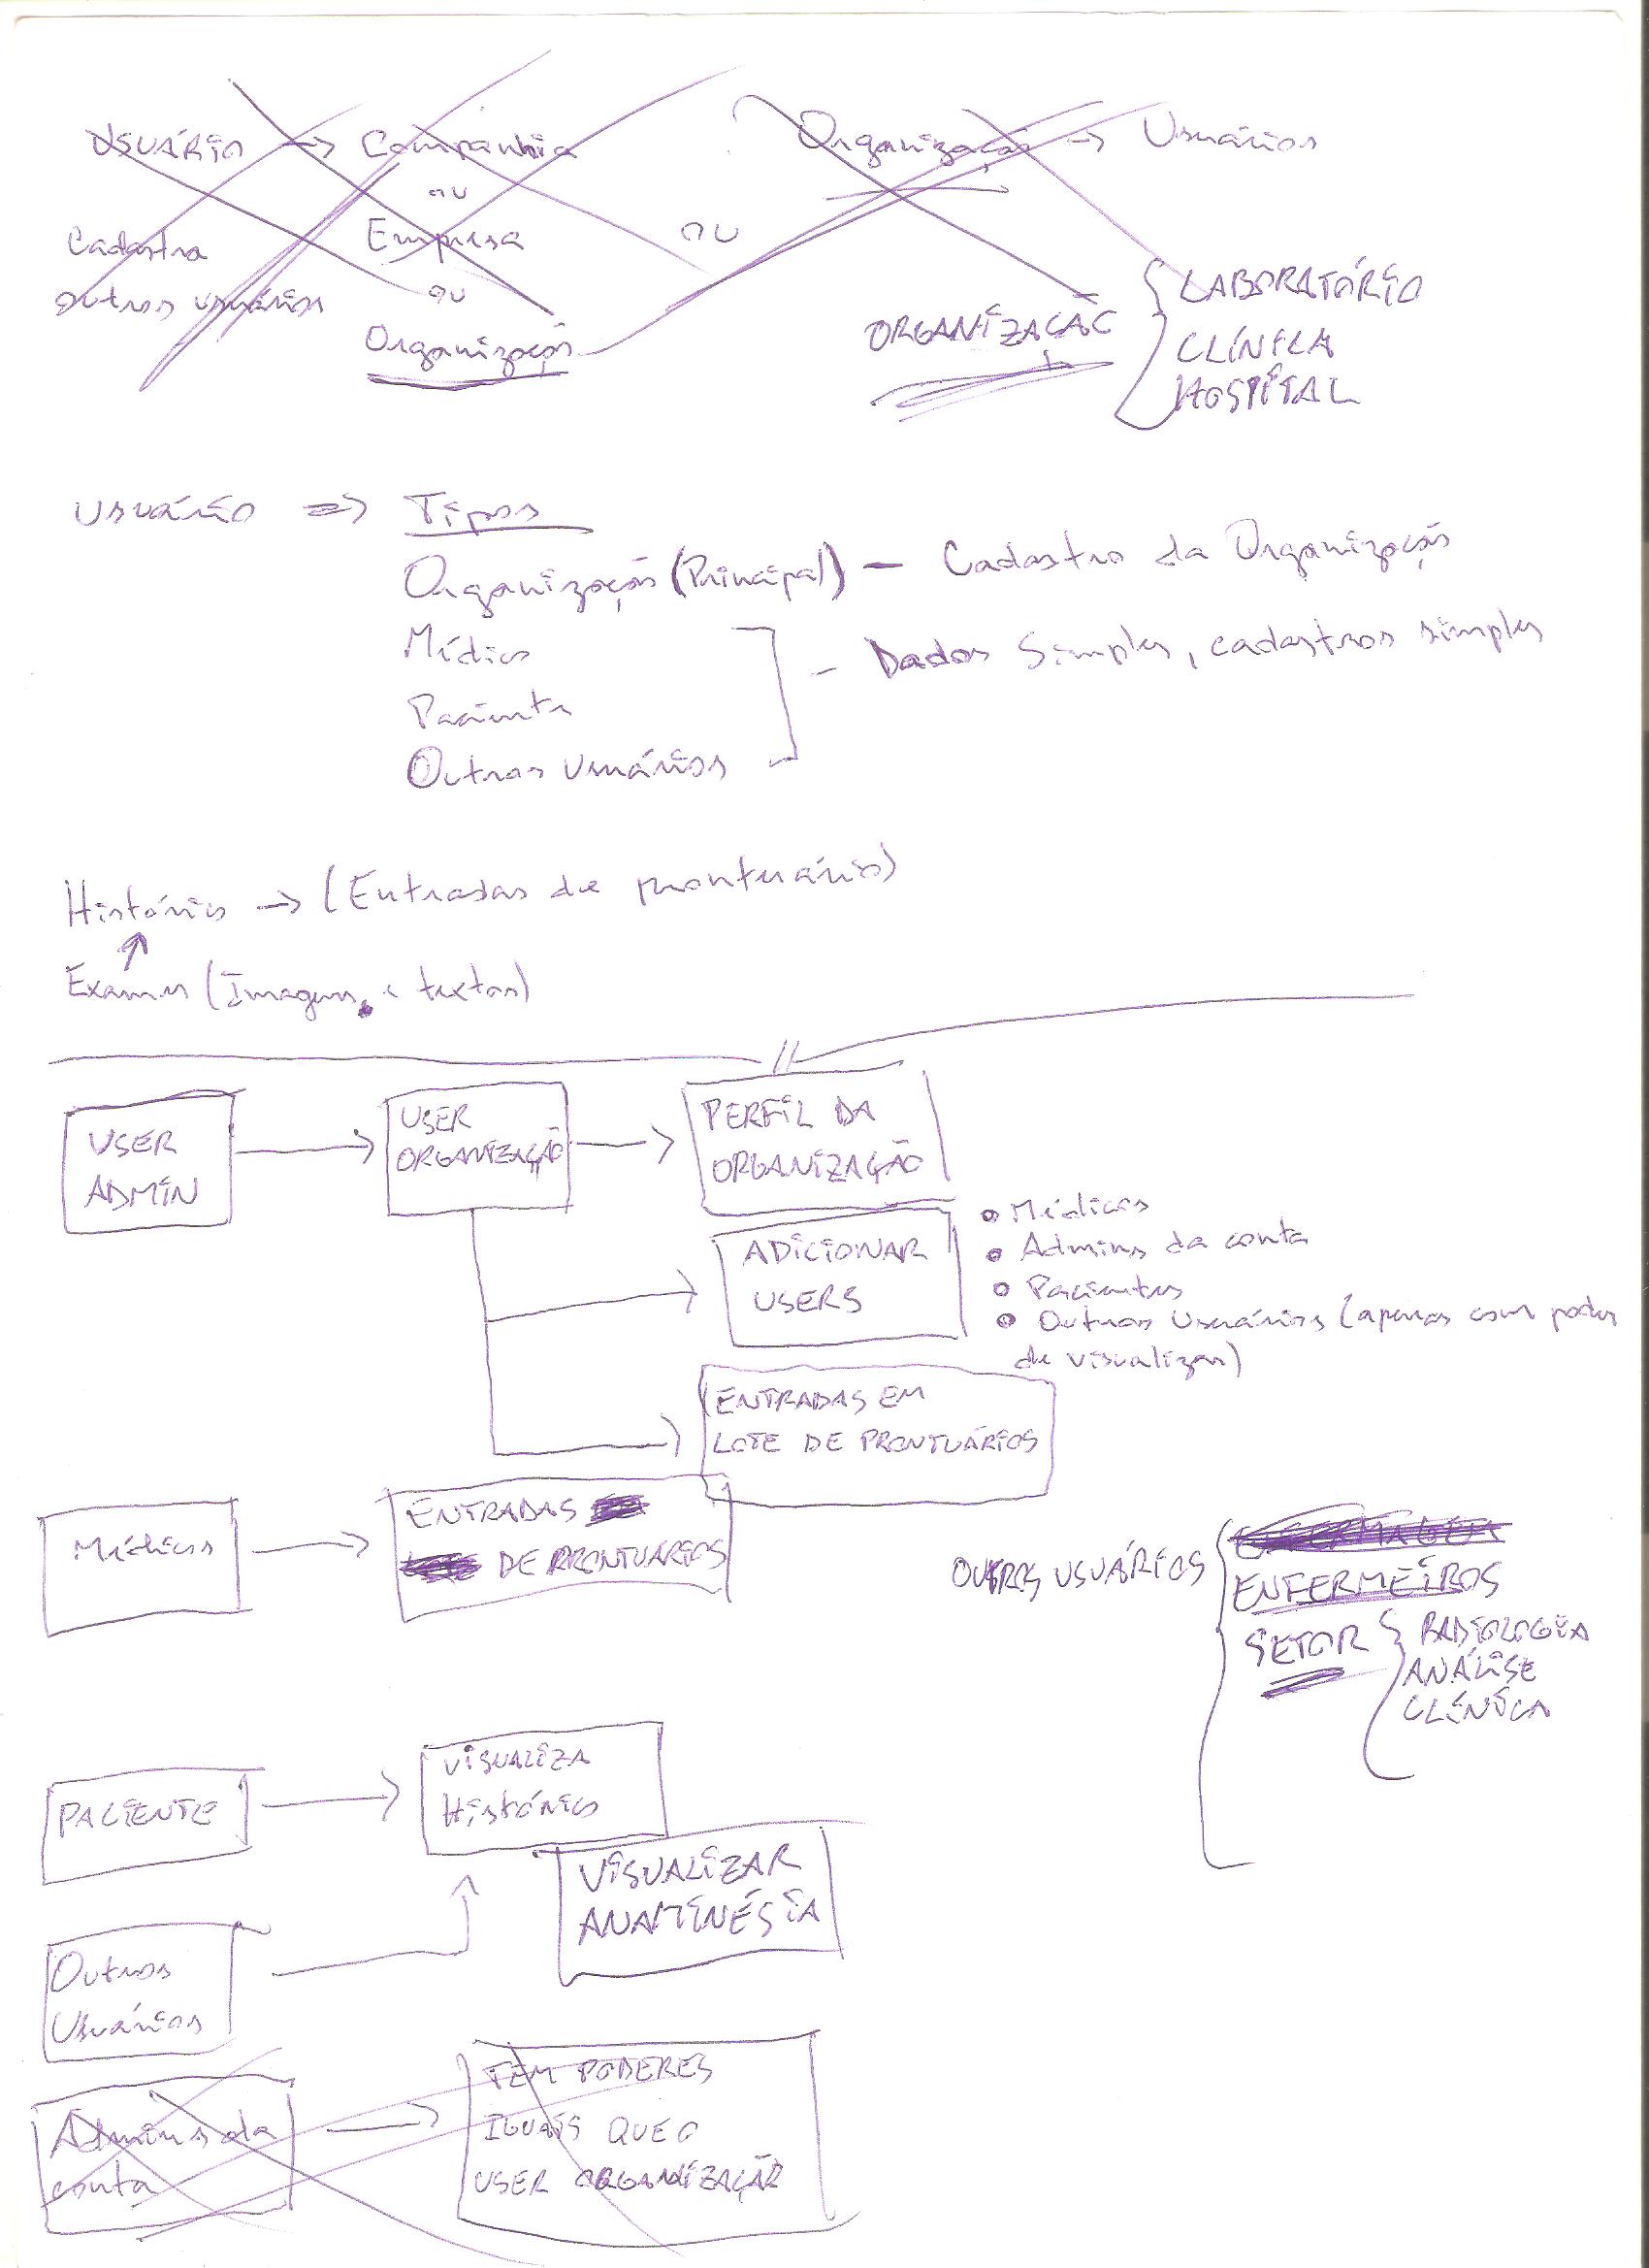 USUÁRIO → Companhia
ou
Cadastra Empresa ou
outros usuários ou
Organização
Organização → Usuários
ORGANIZAÇÃO { LABORATÓRIO
CLÍNICA
HOSPITAL
USUÁRIO => Tipos
Organização (Principal) - Cadastro da Organização
Médico
Paciente
Outros Usuários
- Dados Simples, cadastros simples
Histórico → (Entradas de prontuário)
Exames (Imagens e textos)
USER
ADMIN
USER
ORGANIZAÇÃO
PERFIL DA
ORGANIZAÇÃO
ADICIONAR
USERS
• Médicos
• Admins da conta
• Pacientes
• Outros Usuários (apenas com poder
de visualizar)
ENTRADAS EM
LOTE DE PRONTUÁRIOS
Médicos
ENTRADAS
DE PRONTUARIOS
OUTROS USUÁRIOS {
ENFERMEIROS
SETOR { RADIOLOGIA
ANÁLISE
CLÍNICA
PACIENTE
VISUALIZA
HISTÓRICO
VISUALIZAR
ANAMINÉSIA
Outros
Usuários
Admins da
conta
TEM PODERES
IGUAIS QUE O
USER ORGANIZAÇÃO